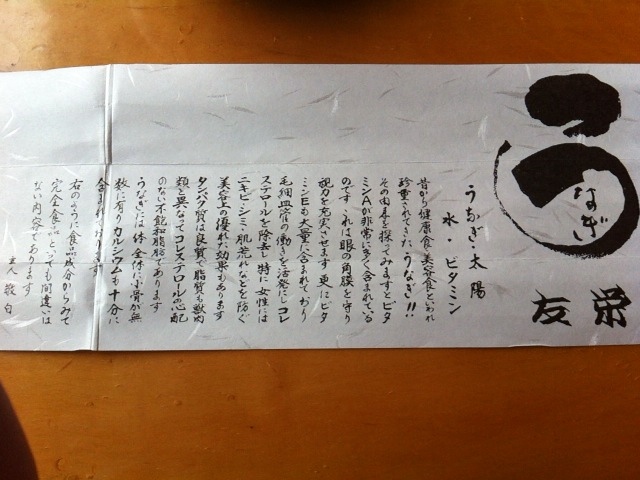 うなぎ
栄友
うなぎ・太陽
水・ビタミン
昔から健康食・美容食といわれ
珍重されてきた、うなぎ!!
その内身を探ってみますとビタ
ミンAが非常に多く含まれている
のです これは眼の角膜を守り
視力を充実させます 更にビタ
ミンEも大量に含まれており
毛細血管の働きを活発にしコレ
ステロールを除去し特に女性には
ニキビ・シミ・肌荒れなどを防ぐ
美容上の優れた効果もあります
タンパク質は良質で脂質も獣肉
類と異なってコレステロールの心配
のない不飽和脂肪であります
うなぎには体全体に小骨が無
数に有りカルシウムも十分に
含まれております
右のように食品成分からみて
完全食品といっても間違いは
ない内容であります
主人 敬白